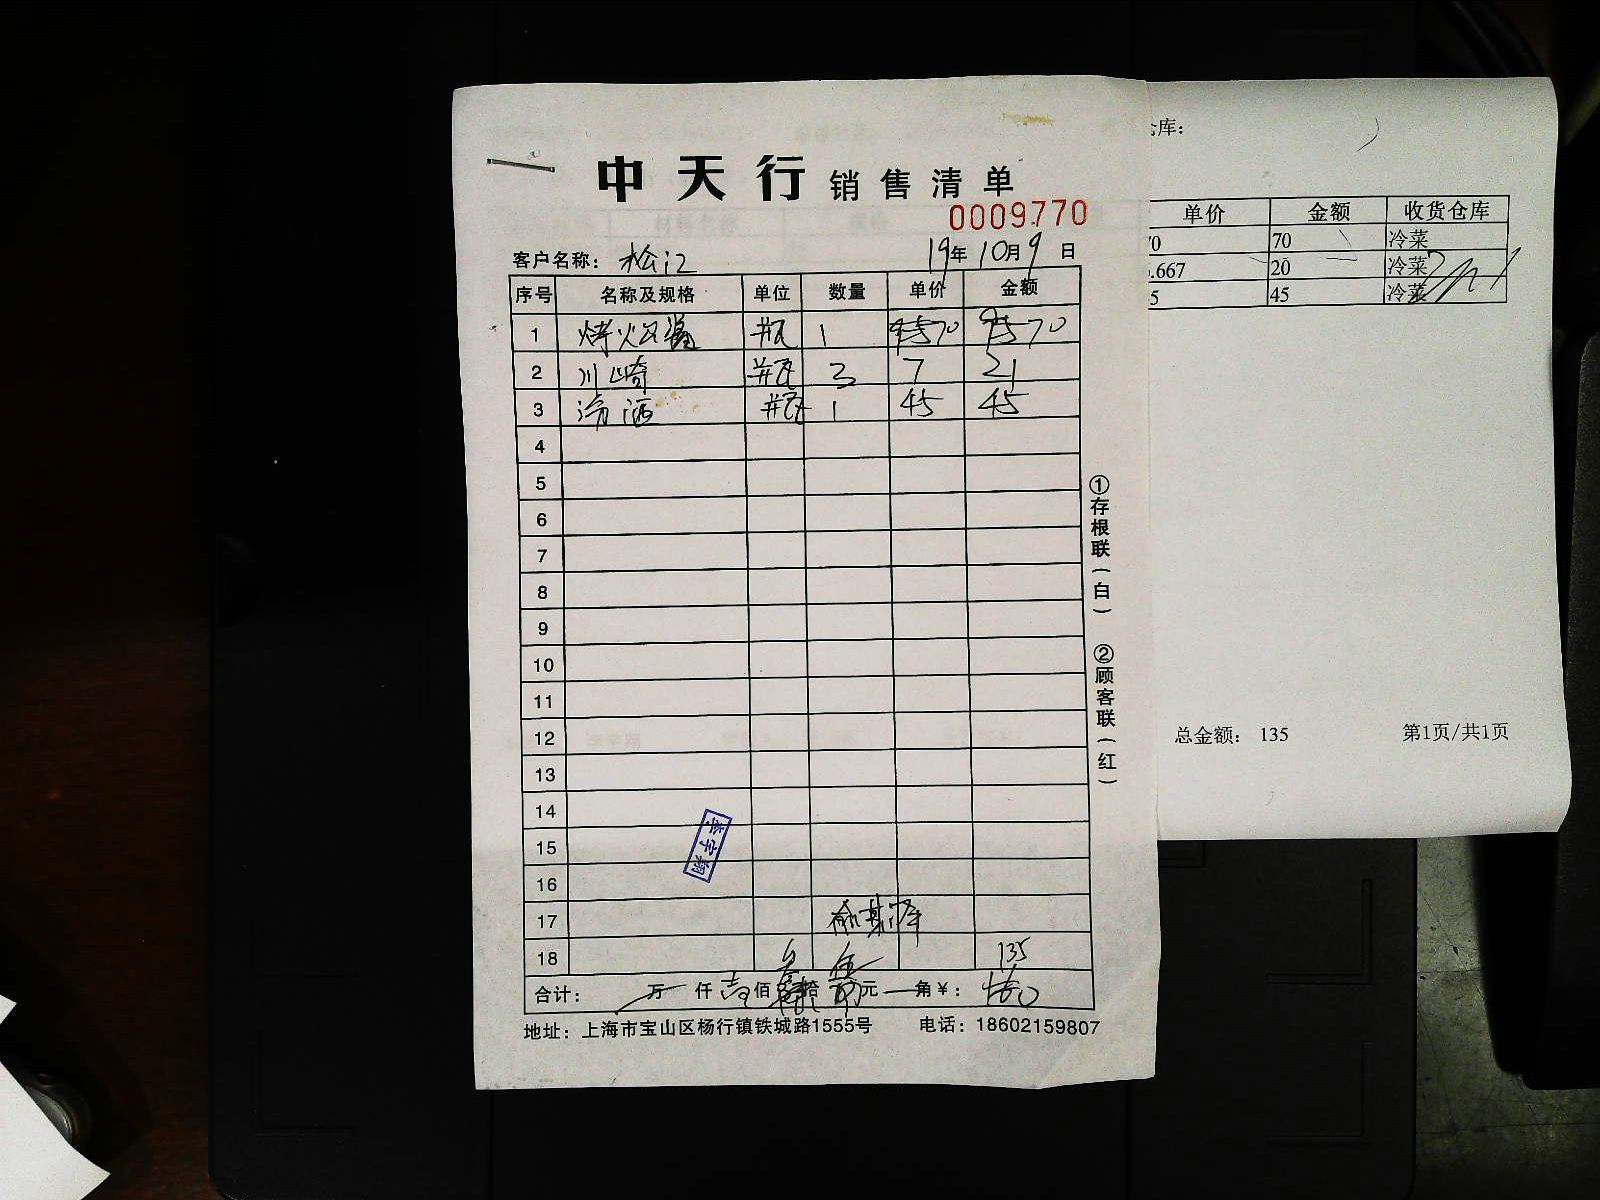 中天行 销售清单
0009770
客户名称: 松江 19年10月9日
序号 名称及规格 单位 数量 单价 金额
1 瓶 1 70 70
2 川崎 瓶 3 7 21
3 汾酒 瓶 1 45 45
4
5
6
7
8
9
10
11
12
13
14
15
16
17
18 135
合计: 万 仟 壹佰 叁拾 伍元 角¥:
地址: 上海市宝山区杨行镇铁城路1555号 电话: 18602159807
①存根联(白) ②顾客联(红)
李宇翔
仓库:
单价 金额 收货仓库
70 70 冷菜
.667 20 冷菜
45 冷菜
总金额: 135 第1页/共1页